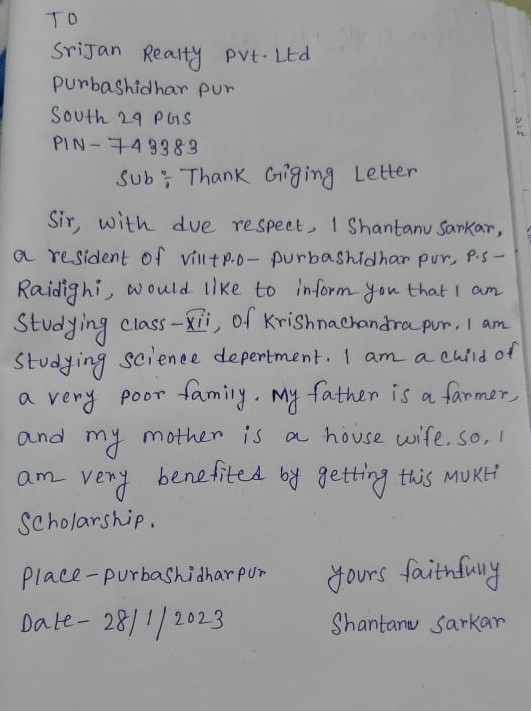 TO
Srijan Realty pvt. Ltd
purbashidhar pur
South 24 PGS
PIN - 743383
Sub : Thank Giging Letter
Sir, with due respect, I Shantanu Sarkar,
a resident of vill+p.o- purbashidhar pur, P.s-
Raidighi, would like to inform you that I am
Studying class-xii, of Krishnachandrapur. I am
Studying science depertment. I am a child of
a very poor family. My father is a farmer,
and my mother is a house wife. so, I
am very benefited by getting this MUKti
Scholarship.
Place - purbashidharpur yours faithfully
Date - 28/1/2023 Shantanu Sarkar